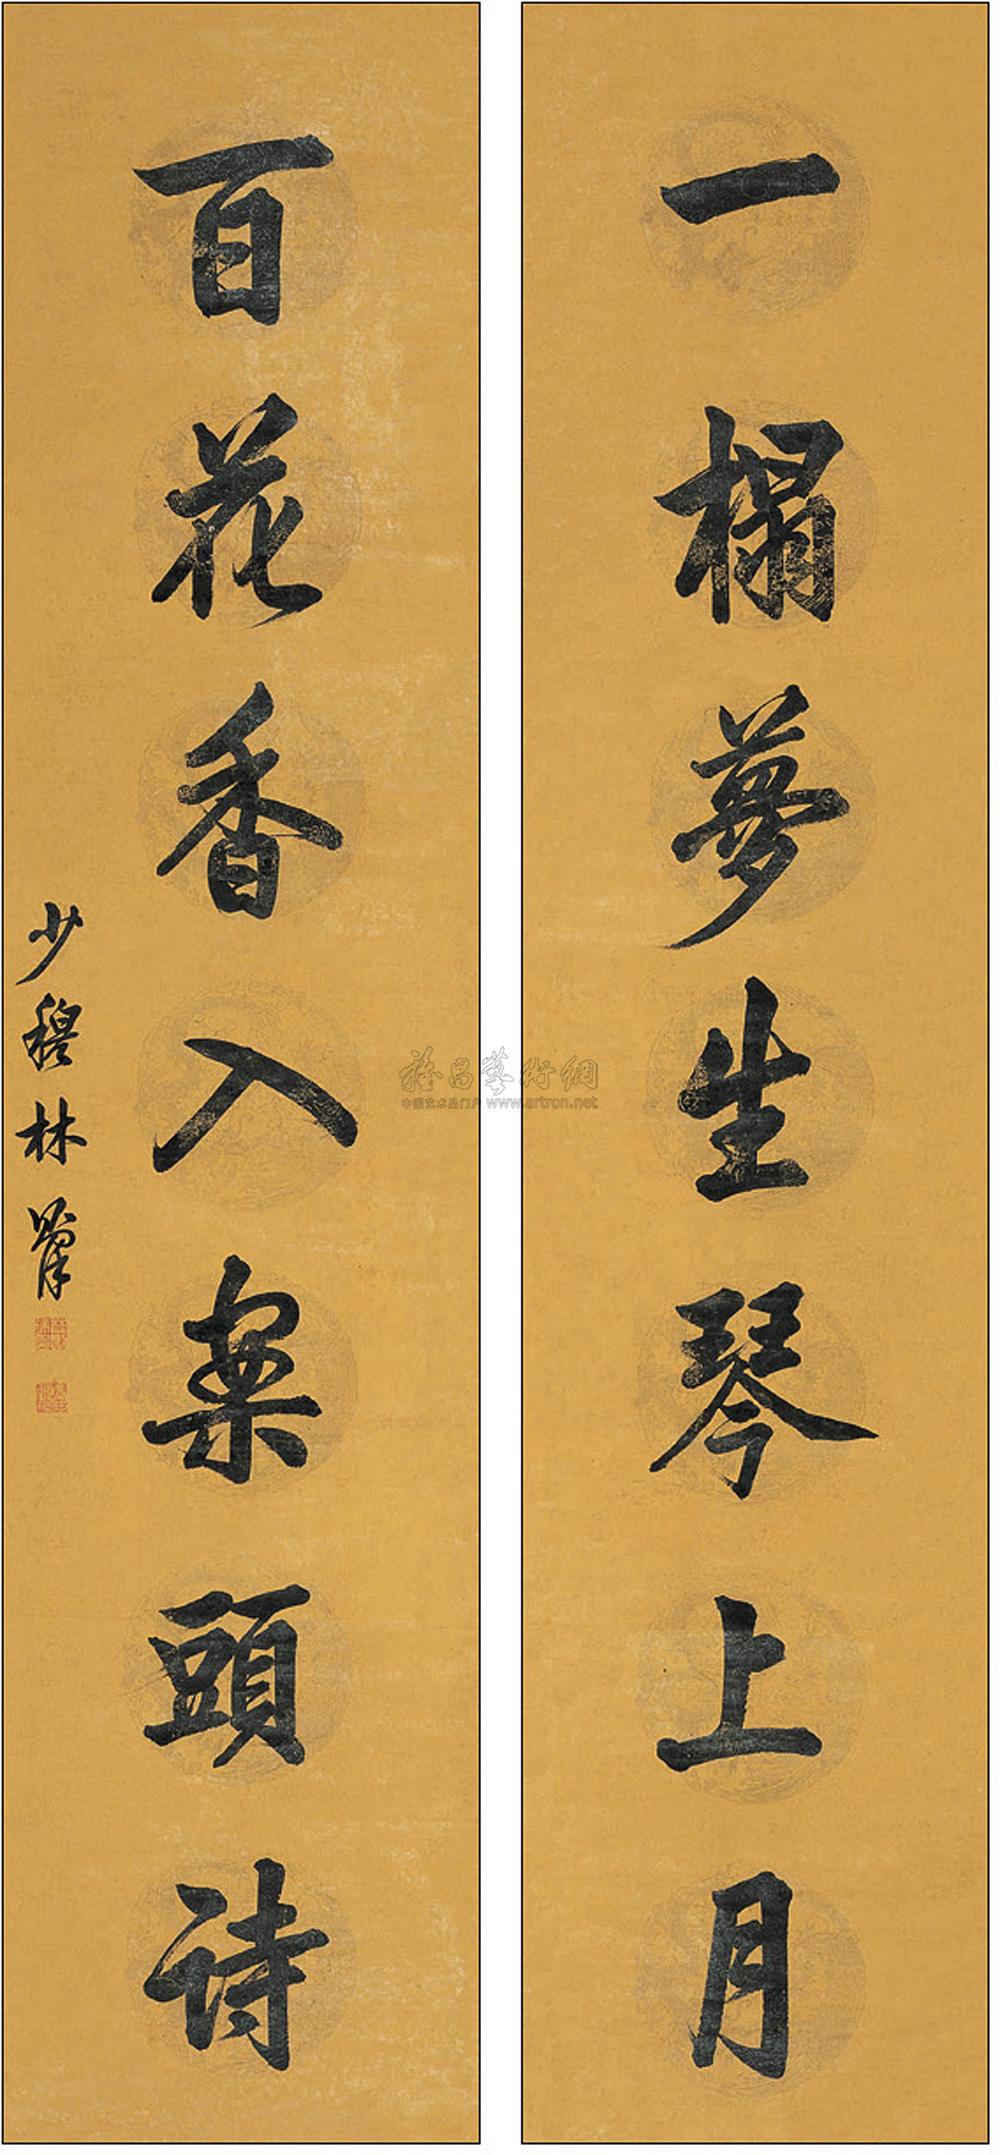 一榻夢生琴上月
百花香入案頭詩
少穆林則徐
雅昌藝術網
中国艺术品门户 www.artron.net